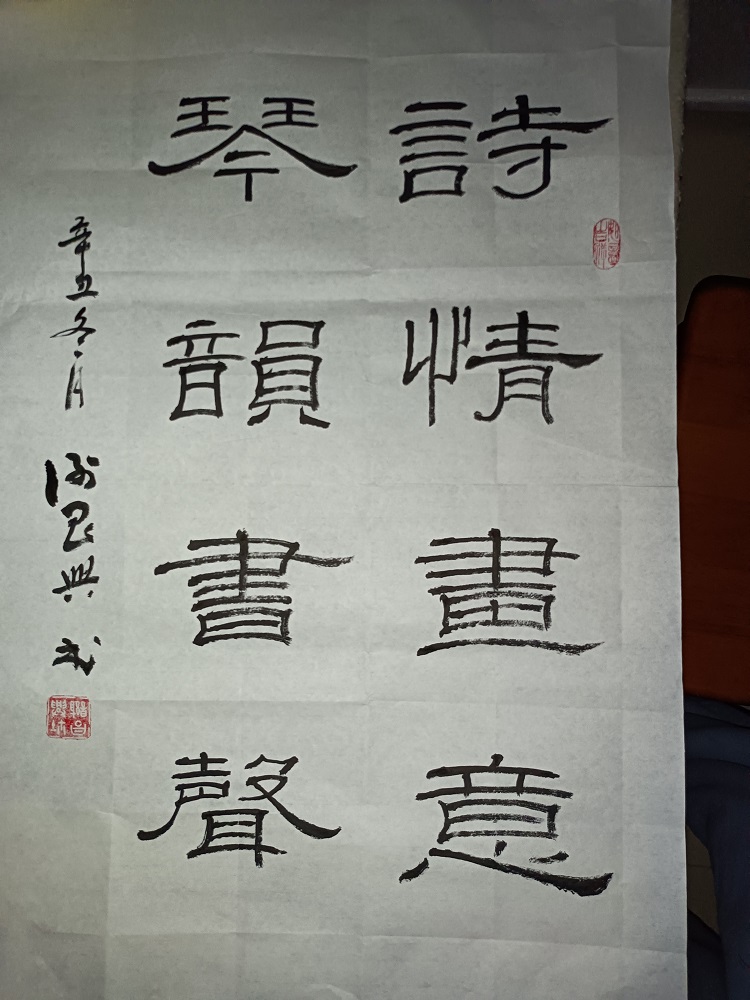 詩情畫意
琴韻書聲
辛丑冬月